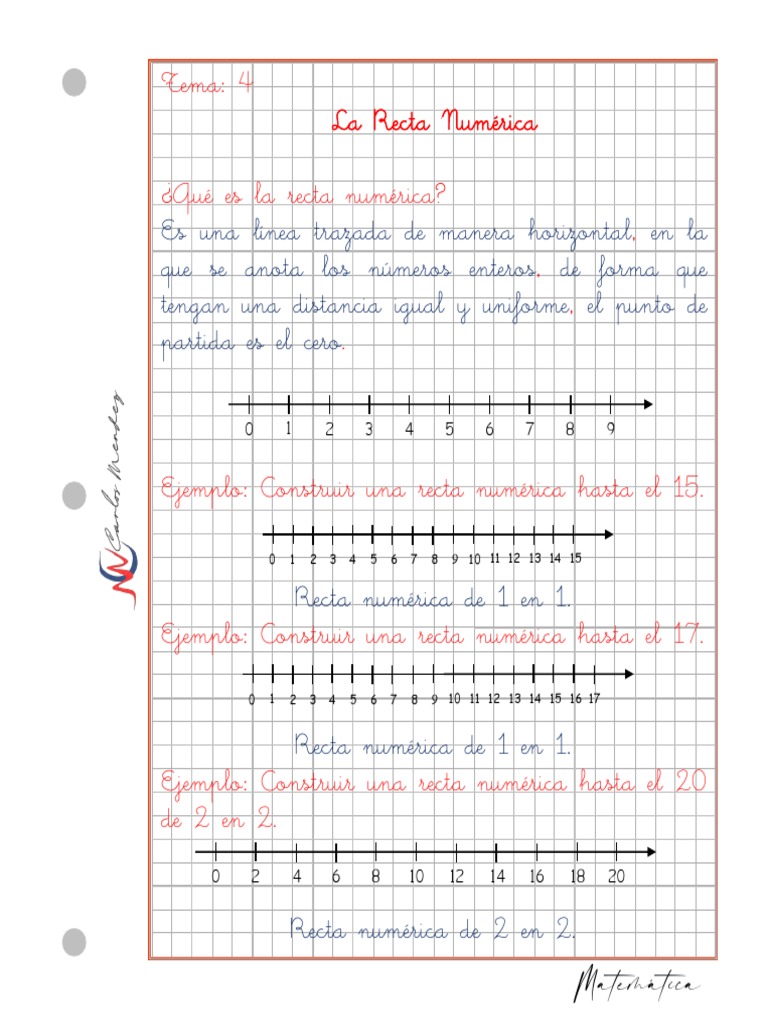 Tema: 4
La Recta Numérica
¿Qué es la recta numérica?
Es una línea trazada de manera horizontal, en la
que se anota los números enteros, de forma que
tengan una distancia igual y uniforme, el punto de
partida es el cero.
0 1 2 3 4 5 6 7 8 9
Ejemplo: Construir una recta numérica hasta el 15.
0 1 2 3 4 5 6 7 8 9 10 11 12 13 14 15
Recta numérica de 1 en 1.
Ejemplo: Construir una recta numérica hasta el 17.
0 1 2 3 4 5 6 7 8 9 10 11 12 13 14 15 16 17
Recta numérica de 1 en 1.
Ejemplo: Construir una recta numérica hasta el 20
de 2 en 2.
0 2 4 6 8 10 12 14 16 18 20
Recta numérica de 2 en 2.
Carlos Mendez
Matemática